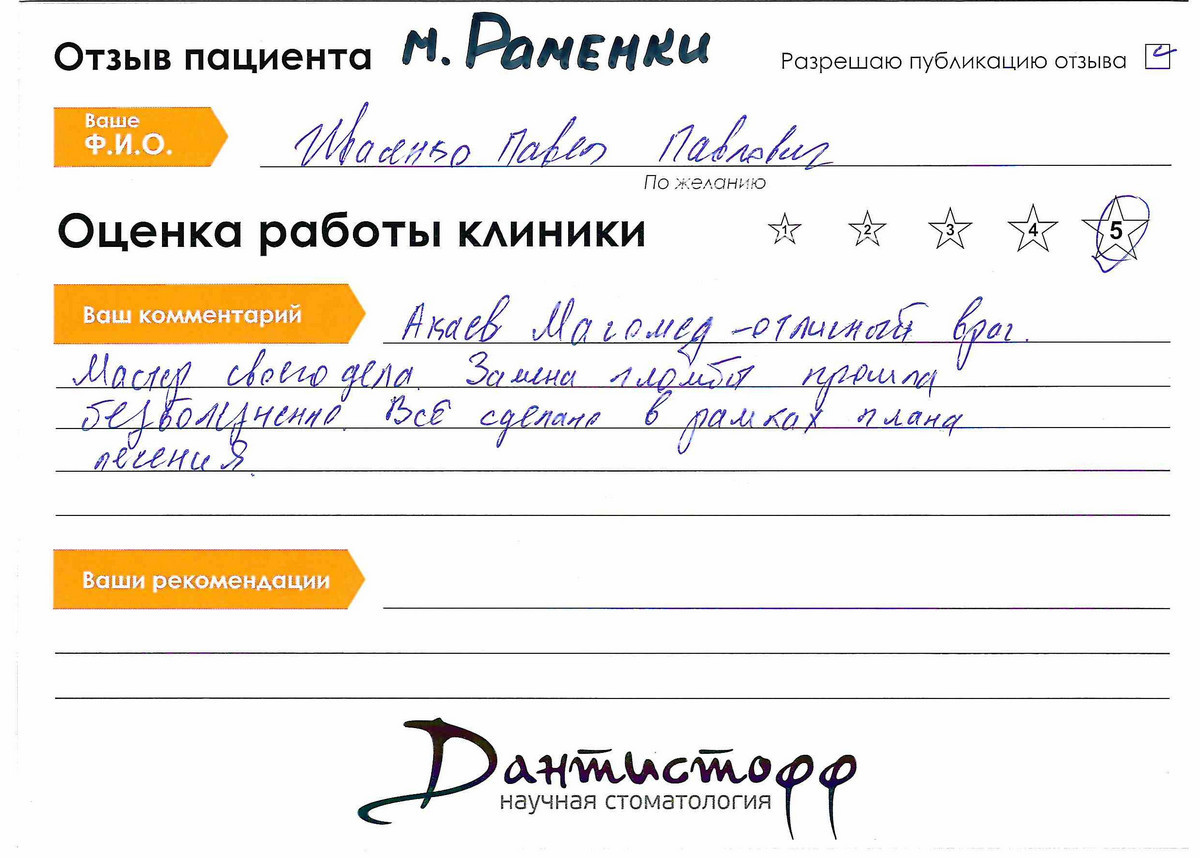 Отзыв пациента м. Раменки
Разрешаю публикацию отзыва
Ваше
Ф.И.О.
Ивасенко Павел Павлович
По желанию
Оценка работы клиники 1 2 3 4 5
Ваш комментарий Акаев Магомед - отличный врач.
Мастер своего дела. Замена пломбы прошла
безболезненно. Всё сделано в рамках плана
лечения.
Ваши рекомендации
Дантистофф
научная стоматология